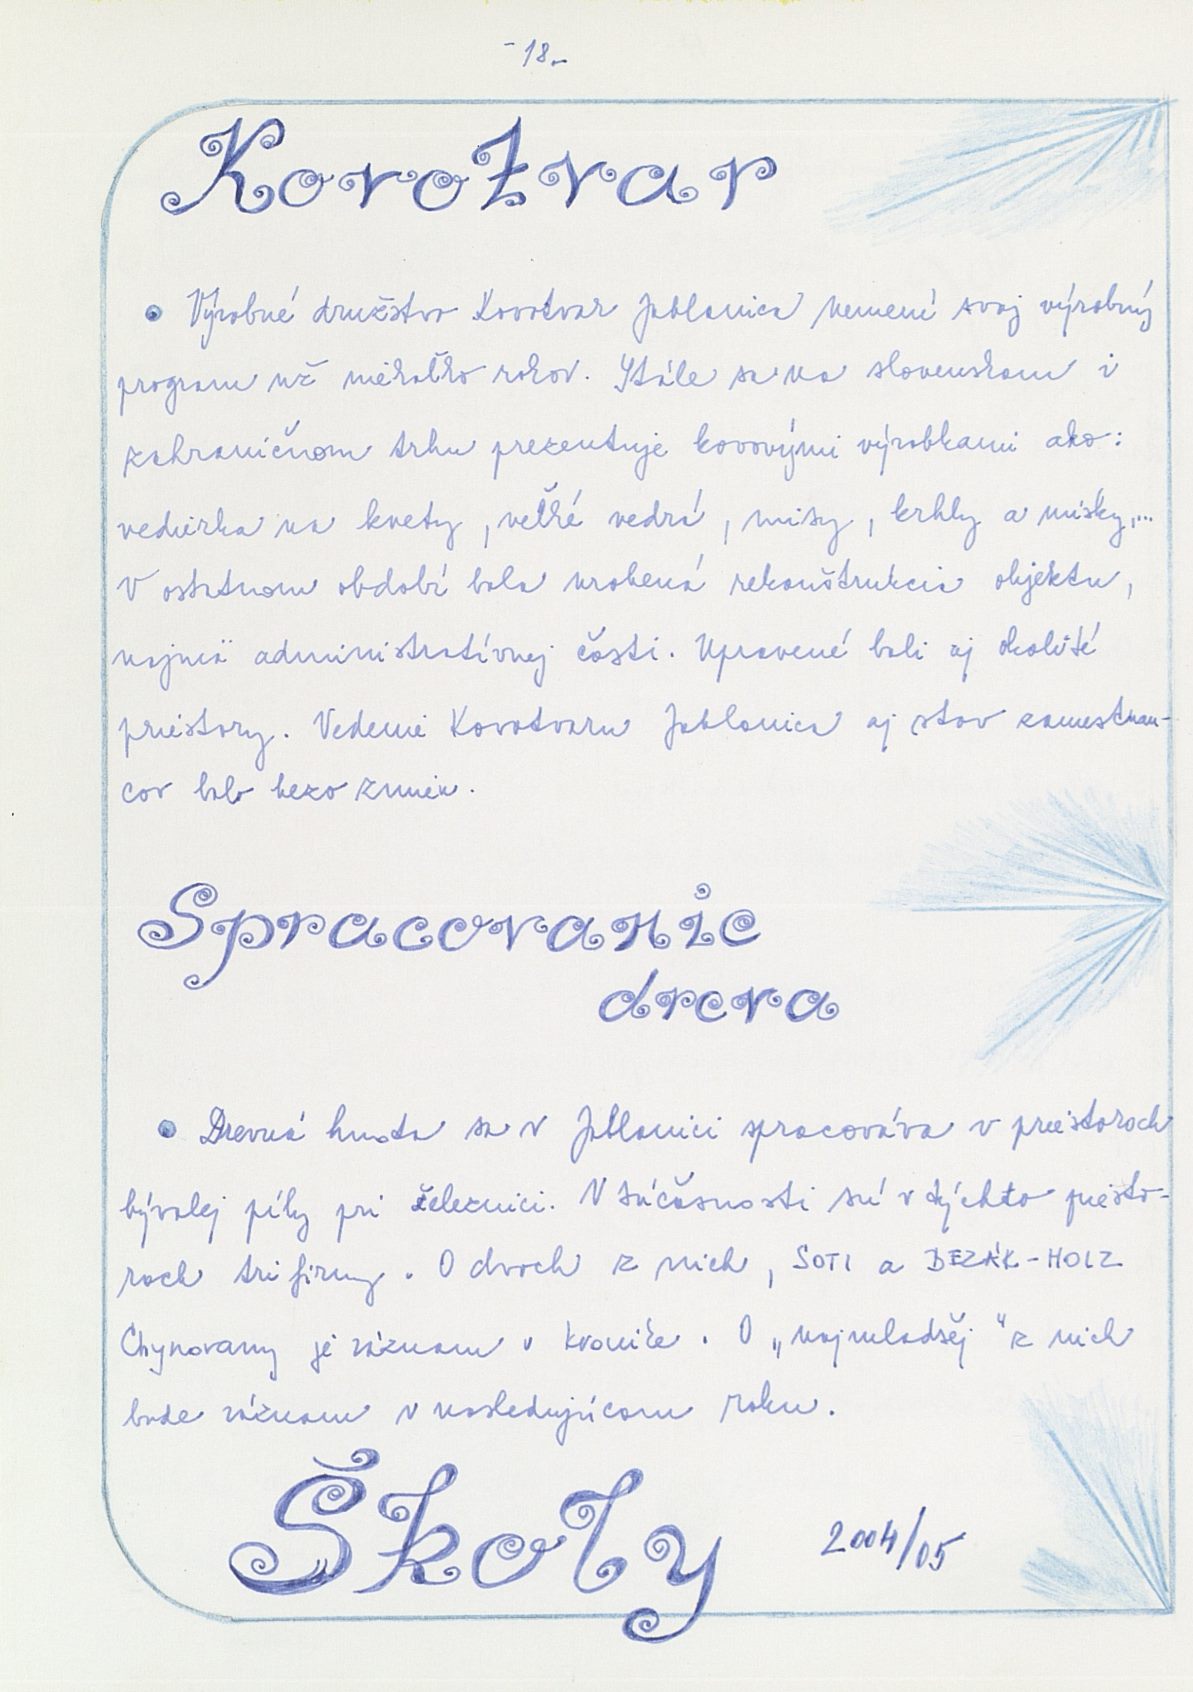 - 18. -
Kovotvar
• Výrobné družstvo Kovotvar Jablonica nemení svoj výrobný
program už niekoľko rokov. Stále sa na slovenskom i
zahraničnom trhu prezentuje kovovými výrobkami ako:
vedierka na kvety, veľké vedrá, misy, krhly a misky,...
V ostatnom období bola urobená rekonštrukcia objektu,
najmä administratívnej časti. Upravené boli aj okolité
priestory. Vedenie Kovotvaru Jablonica aj stav zamestnan-
cov bolo bezo zmien.
Spracovanie
dreva
• Drevná hmota sa v Jablonici spracováva v priestoroch
bývalej píly pri železnici. V súčasnosti sú v týchto priesto-
roch tri firmy. O dvoch z nich, SOTI a BEZÁK-HOLZ
Chynorany je záznam v kronike. O „najmladšej" z nich
bude záznam v nasledujúcom roku.
Školy 2004/05